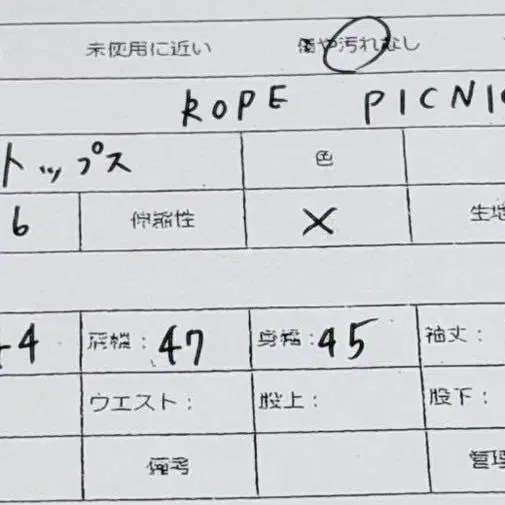 未使用に近い 傷や汚れなし
ROPE PICNIC
トップス 色
6 伸縮性 × 生地
4 肩幅:47 身幅:45 袖丈:
ウエスト: 股上: 股下:
備考 管理